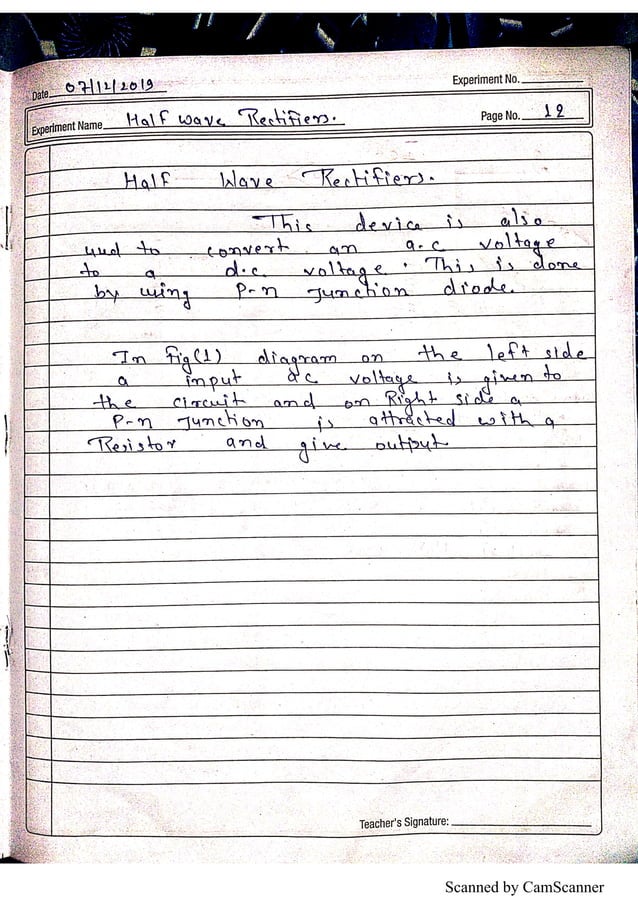 Date 07/12/2019
Experiment No.
Experiment Name Half wave Rectifiers.
Page No. 12
Half Wave Rectifiers.
This device is also
used to convert an a.c voltage
to a d.c voltage. This is done
by using P-n Junction diode.
In fig(1) diagram on the left side
a input dc voltage is given to
the circuit and on Right side a
P-n Junction is attracted with a
Resistor and give output
Teacher's Signature:
Scanned by CamScanner